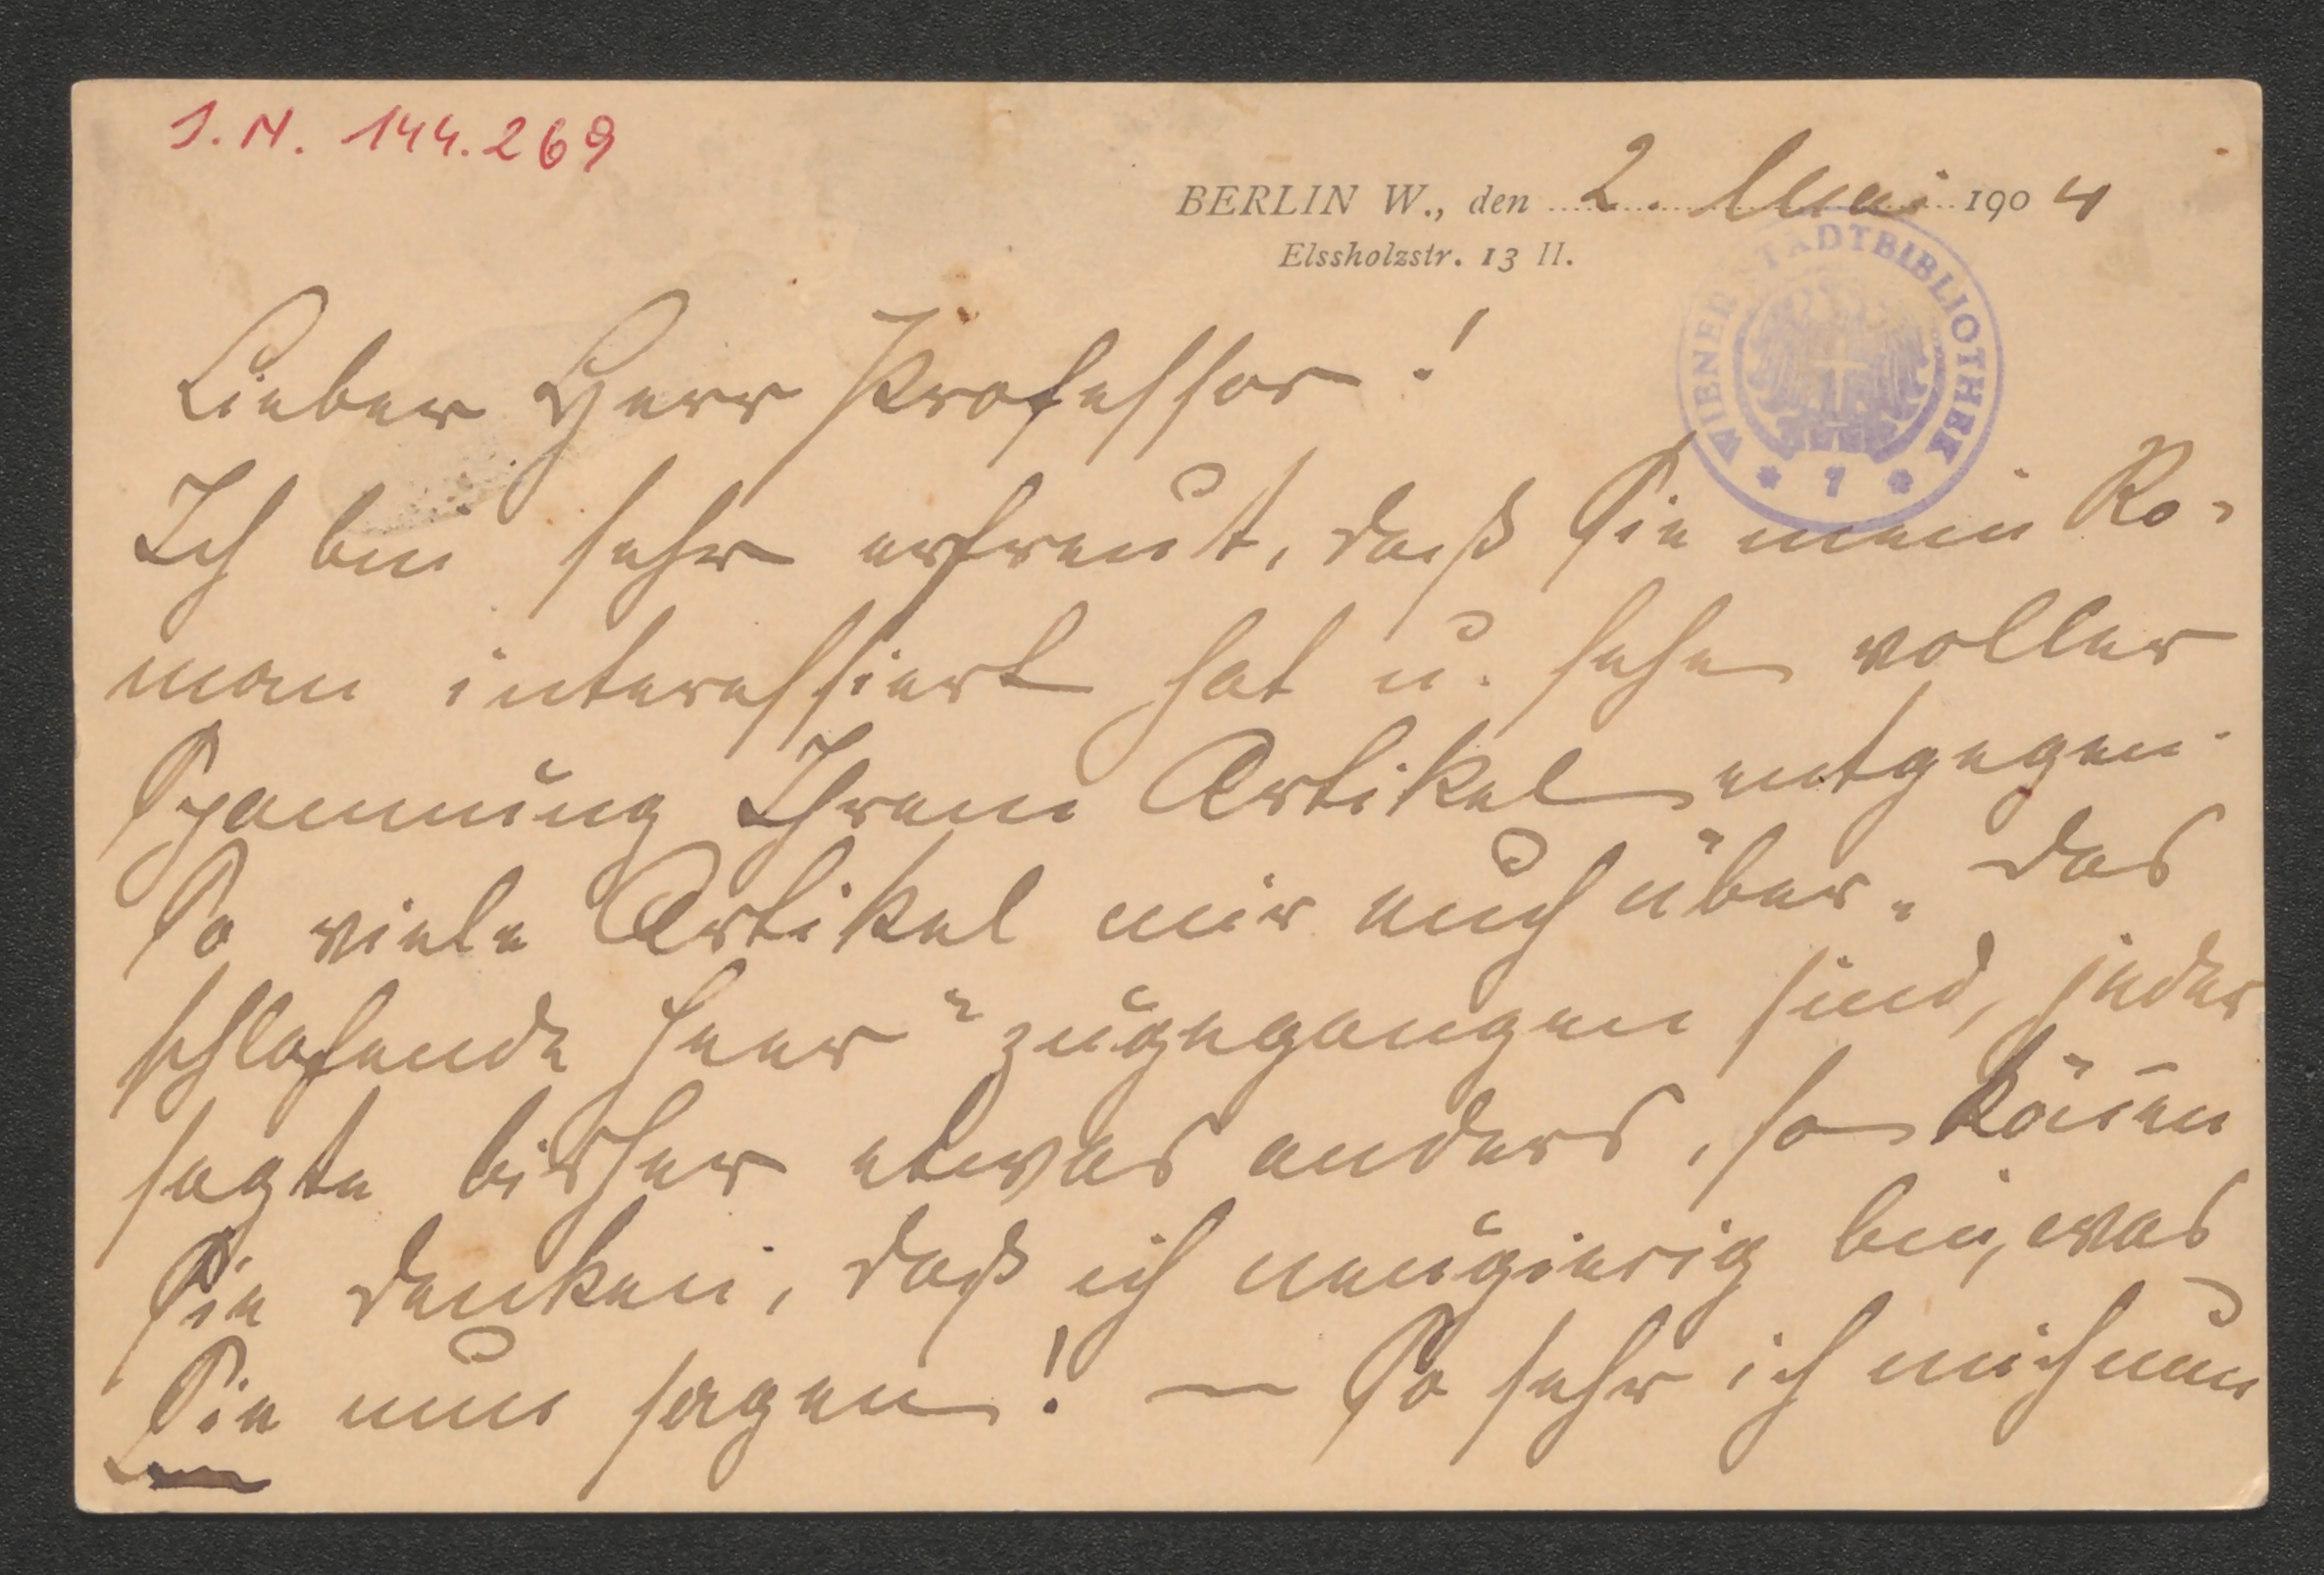 J.N. 144.269
BERLIN W., den 2. Mai 1904
Elssholzstr. 13 II.
WIENER STADTBIBLIOTHEK
* 7 *
Lieber Herr Professor!
Ich bin sehr erfreut, daß Sie mein Ro-
man interessiert hat u. sehe voller
Spannung Ihrem Artikel entgegen.
So viele Artikel mir auch über „Das
schlafende Heer“ zugegangen sind, jeder
sagte bisher etwas anders, so kön̄en
Sie denken, daß ich neugierig bin, was
Sie nun sagen! — So sehr ich mich nun